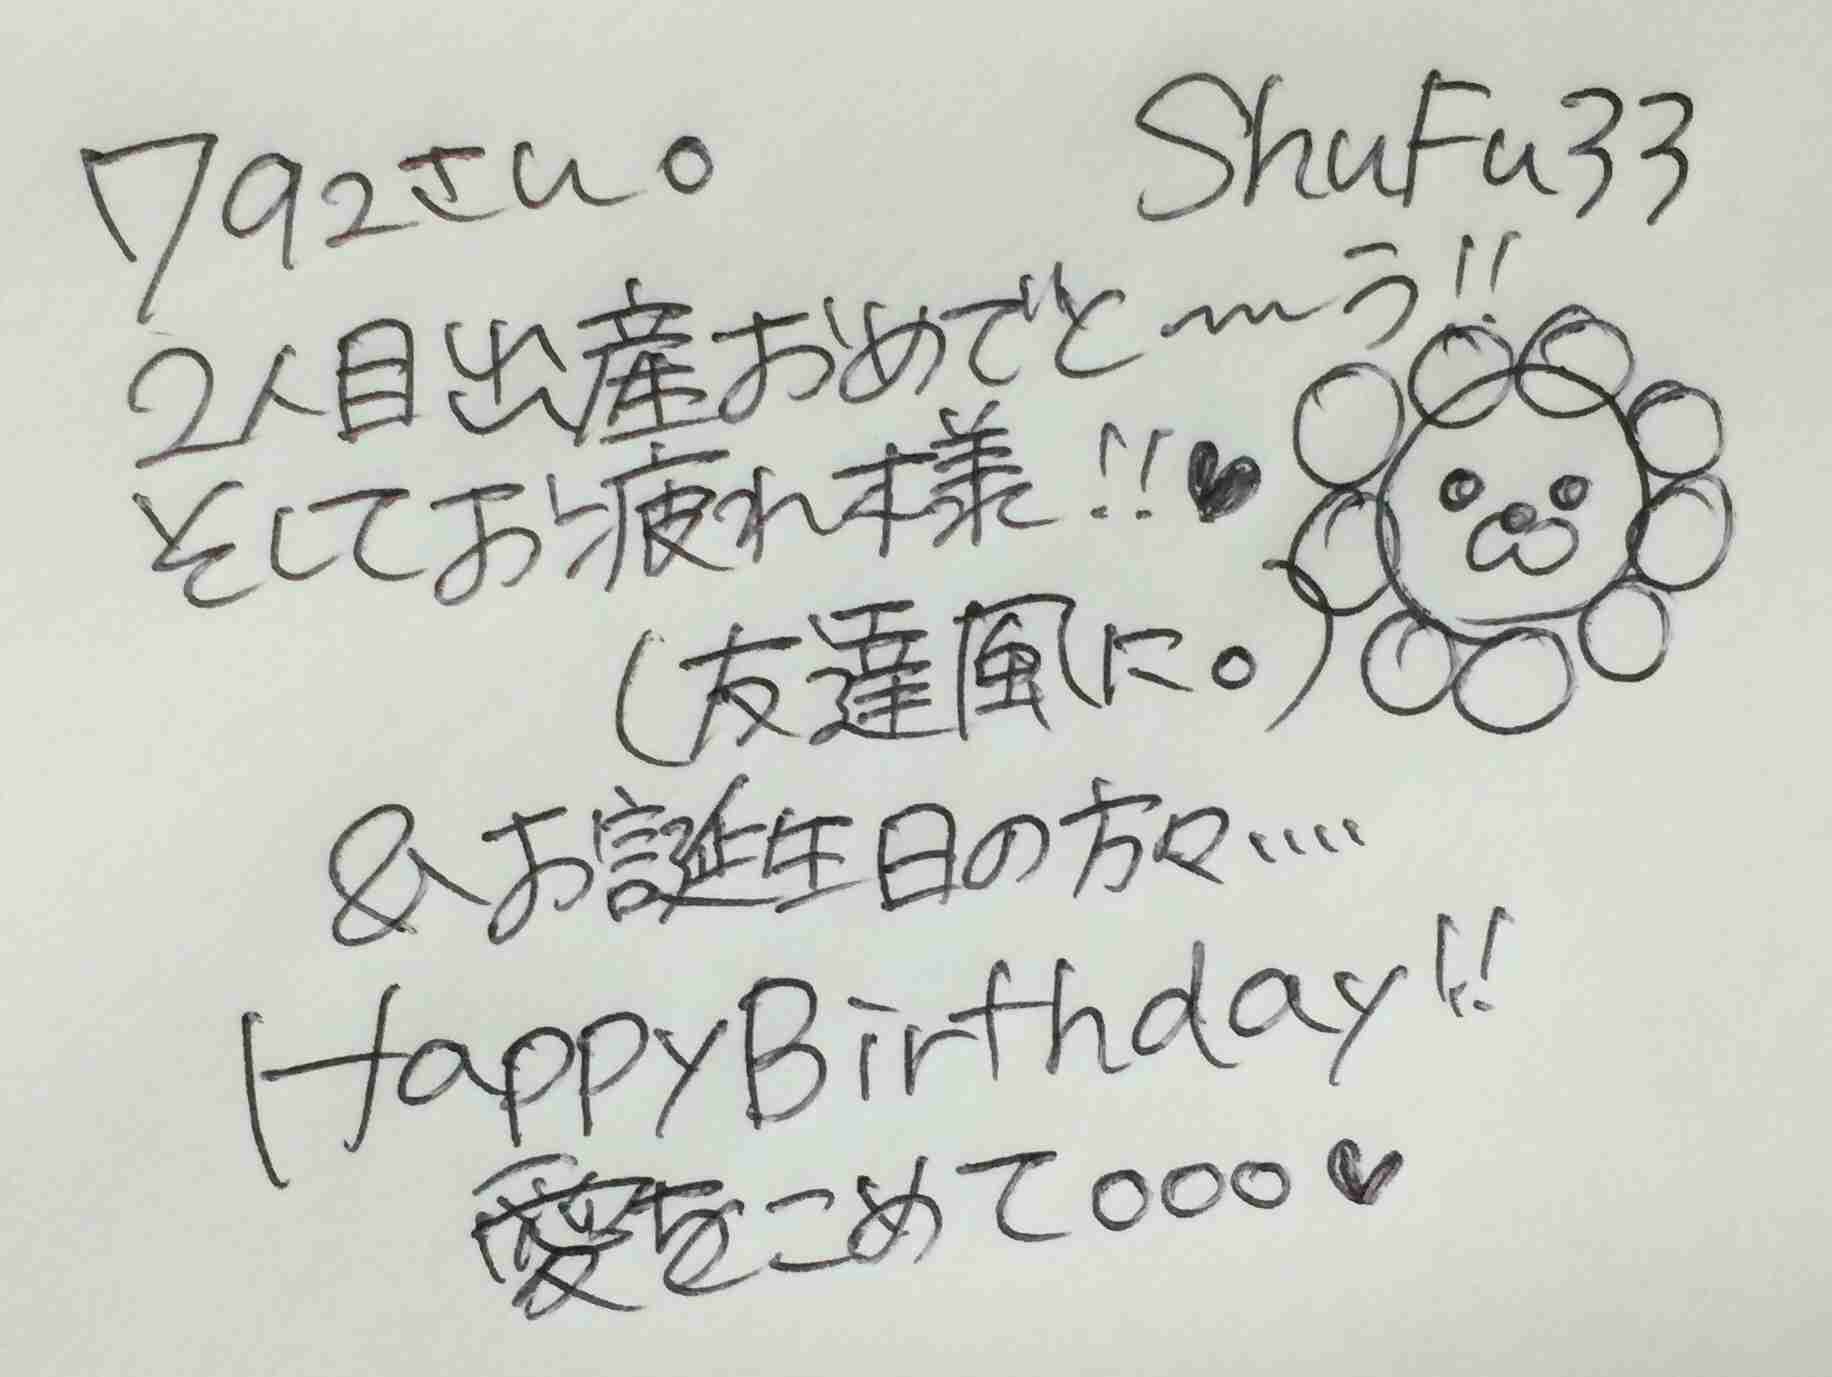 792さん。
ShuFu33
2人目出産おめでと〜う!!
そしてお疲れ様!!♥
(友達風に。)
&お誕生日の方々....
HappyBirthday!!
愛をこめて。。。♥